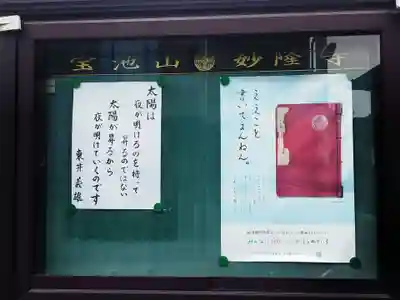 宝池山 妙隆寺
太陽は
夜が明けるのを待って
昇るのではない
太陽が昇るから
夜が明けていくのです
東井義雄
ええこと
書いてまんねん。